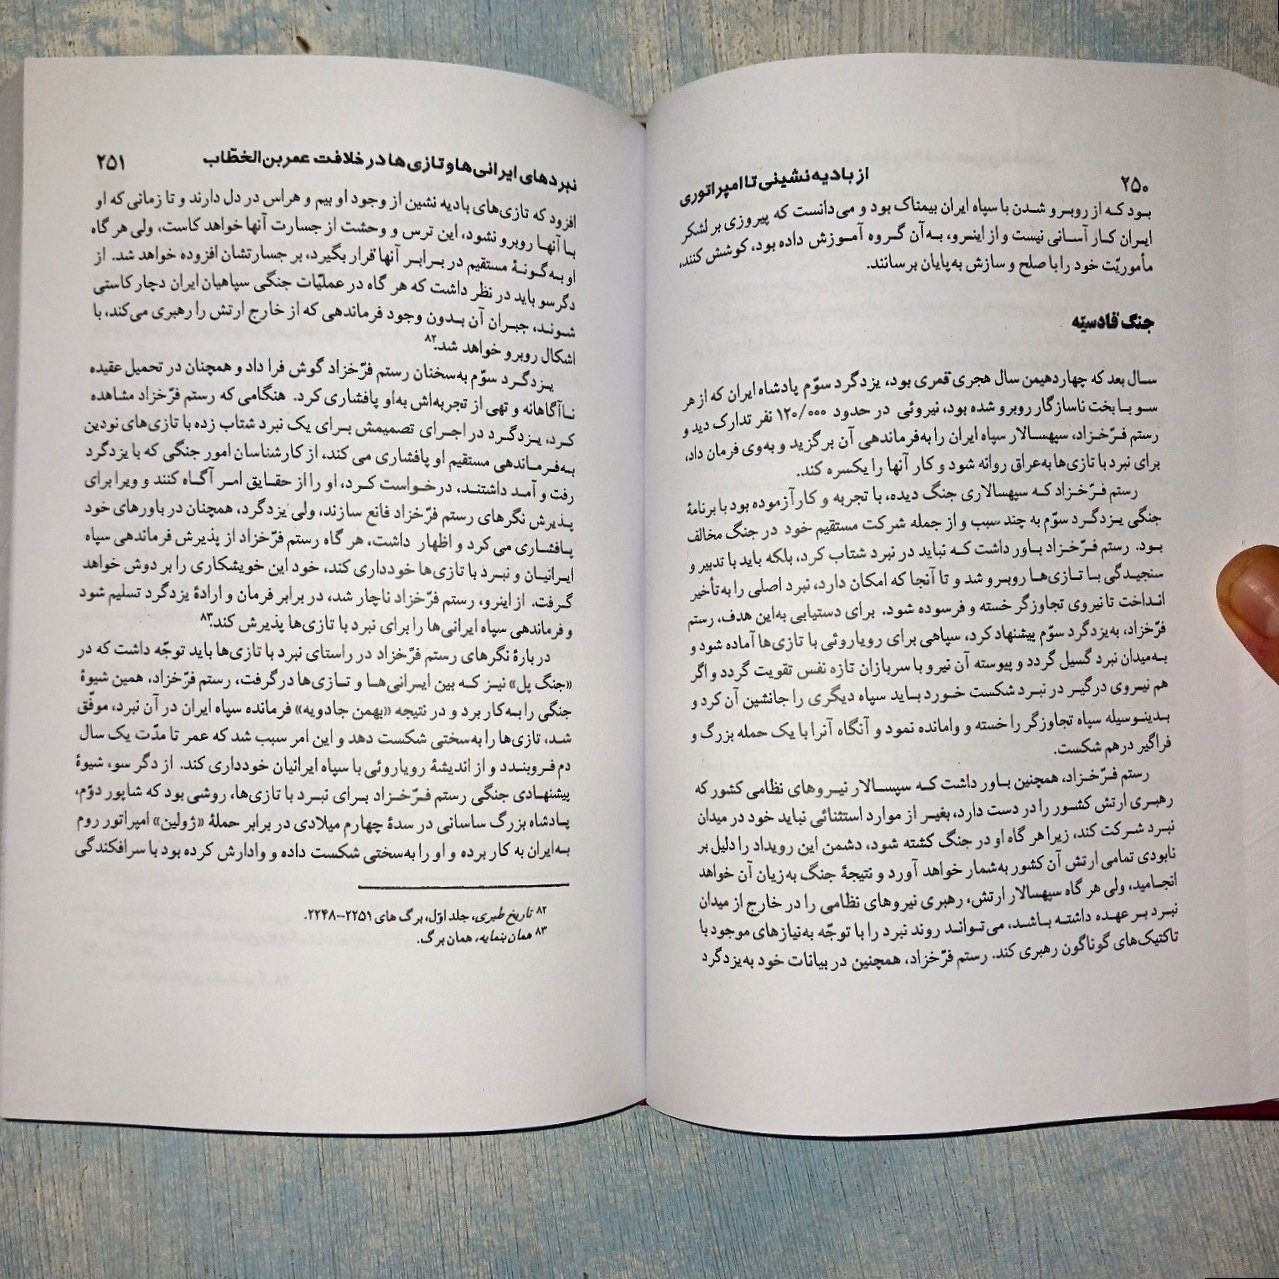 ۲۵۰
از بادیه نشینی تا امپراتوری
بود که از روبرو شدن با سپاه ایران بیمناک بود و می‌دانست که پیروزی بر لشکر
ایران کار آسانی نیست و از اینرو، به‌آن گروه آموزش داده بود، کوشش کنند،
مأموریّت خود را با صلح و سازش به‌پایان برسانند.
جنگ قادسیّه
سال بعد که چهاردهیمن سال هجری قمری بود، یزدگرد سوّم پادشاه ایران که از هر
سو با بخت ناسازگار روبرو شده بود، نیروئی در حدود ۱۲۰/۰۰۰ نفر تدارک دید و
رستم فرّخزاد، سپهسالار سپاه ایران را به‌فرماندهی آن برگزید و به‌وی فرمان داد،
برای نبرد با تازی‌ها به‌عراق روانه شود و کار آنها را یکسره کند.
رستم فرّخزاد که سپهسالاری جنگ دیده، با تجربه و کارآزموده بود با برنامهٔ
جنگی یزدگرد سوّم به چند سبب و از جمله شرکت مستقیم خود در جنگ مخالف
بود. رستم فرّخزاد باور داشت که نباید در نبرد شتاب کرد، بلکه باید با تدبیر و
سنجیدگی با تازی‌ها روبرو شد و تا آنجا که امکان دارد، نبرد اصلی را به‌تأخیر
انداخت تا نیروی تجاوزگر خسته و فرسوده شود. برای دستیابی به‌این هدف، رستم
فرّخزاد، به‌یزدگرد سوّم پیشنهاد کرد، سپاهی برای رویاروئی با تازی‌ها آماده شود و
به‌میدان نبرد گسیل گردد و پیوسته آن نیرو با سربازان تازه نفس تقویت گردد و اگر
هم نیروی درگیر در نبرد شکست خورد باید سپاه دیگری را جانشین آن کرد و
بدینوسیله سپاه تجاوزگر را خسته و وامانده نمود و آنگاه آنرا با یک حمله بزرگ و
فراگیر درهم شکست.
رستم فرّخزاد، همچنین باور داشت که سپسالار نیروهای نظامی کشور که
رهبری ارتش کشور را در دست دارد، بغیر از موارد استثنائی نباید خود در میدان
نبرد شرکت کند، زیرا هر گاه او در جنگ کشته شود، دشمن این رویداد را دلیل بر
نابودی تمامی ارتش آن کشور به‌شمار خواهد آورد و نتیجهٔ جنگ به‌زیان آن خواهد
انجامید، ولی هر گاه سپهسالار ارتش، رهبری نیروهای نظامی را در خارج از میدان
نبرد بر عهده داشته باشد، می‌تواند روند نبرد را با توجّه به‌نیازهای موجود با
تاکتیک‌های گوناگون رهبری کند. رستم فرّخزاد، همچنین در بیانات خود به‌یزدگرد
نبردهای ایرانی‌ها و تازی‌ها در خلافت عمر بن الخطّاب
۲۵۱
افزود که تازی‌های بادیه نشین از وجود او بیم و هراس در دل دارند و تا زمانی که او
با آنها روبرو نشود، این ترس و وحشت از جسارت آنها خواهد کاست، ولی هر گاه
او به‌گونهٔ مستقیم در برابر آنها قرار بگیرد، بر جسارتشان افزوده خواهد شد. از
دگر سو باید در نظر داشت که هر گاه در عملیّات جنگی سپاهیان ایران دچار کاستی
شوند، جبران آن بدون وجود فرماندهی که از خارج ارتش را رهبری می‌کند، با
اشکال روبرو خواهد شد.۸۲
یزدگرد سوّم به‌سخنان رستم فرّخزاد گوش فرا داد و همچنان در تحمیل عقیده
ناآگاهانه و تهی از تجربه‌اش به‌او پافشاری کرد. هنگامی که رستم فرّخزاد مشاهده
کرد، یزدگرد در اجرای تصمیمش برای یک نبرد شتاب زده با تازی‌های نودین
به‌فرماندهی مستقیم او پافشاری می کند، از کارشناسان امور جنگی که با یزدگرد
رفت و آمد داشتند، درخواست کرد، او را از حقایق امر آگاه کنند و ویرا برای
پذیرش نگرهای رستم فرّخزاد قانع سازند، ولی یزدگرد، همچنان در باورهای خود
پافشاری می کرد و اظهار داشت، هر گاه رستم فرّخزاد از پذیرش فرماندهی سپاه
ایرانیان و نبرد با تازی‌ها خودداری کند، خود این خویشکاری را بر دوش خواهد
گرفت. از اینرو، رستم فرّخزاد ناچار شد، در برابر فرمان و ارادهٔ یزدگرد تسلیم شود
و فرماندهی سپاه ایرانی‌ها را برای نبرد با تازی‌ها پذیرش کند.۸۳
دربارهٔ نگرهای رستم فرّخزاد در راستای نبرد با تازی‌ها باید توجّه داشت که در
«جنگ پل» نیز که بین ایرانی‌ها و تازی‌ها درگرفت، رستم فرّخزاد، همین شیوهٔ
جنگی را به‌کار برد و در نتیجه «بهمن جادویه» فرمانده سپاه ایران در آن نبرد، موفّق
شد، تازی‌ها را به‌سختی شکست دهد و این امر سبب شد که عمر تا مدّت یک سال
دم فروبندد و از اندیشهٔ رویاروئی با سپاه ایرانیان خودداری کند. از دگر سو، شیوهٔ
پیشنهادی جنگی رستم فرّخزاد برای نبرد با تازی‌ها، روشی بود که شاپور دوّم،
پادشاه بزرگ ساسانی در سدهٔ چهارم میلادی در برابر حملهٔ «ژولین» امپراتور روم
به‌ایران به کار برده و او را به‌سختی شکست داده و وادارش کرده بود با سرافکندگی
۸۲ تاریخ طبری، جلد اوّل، برگ های ۲۲۵۱–۲۲۴۸.
۸۳ همان بنمایه، همان برگ.